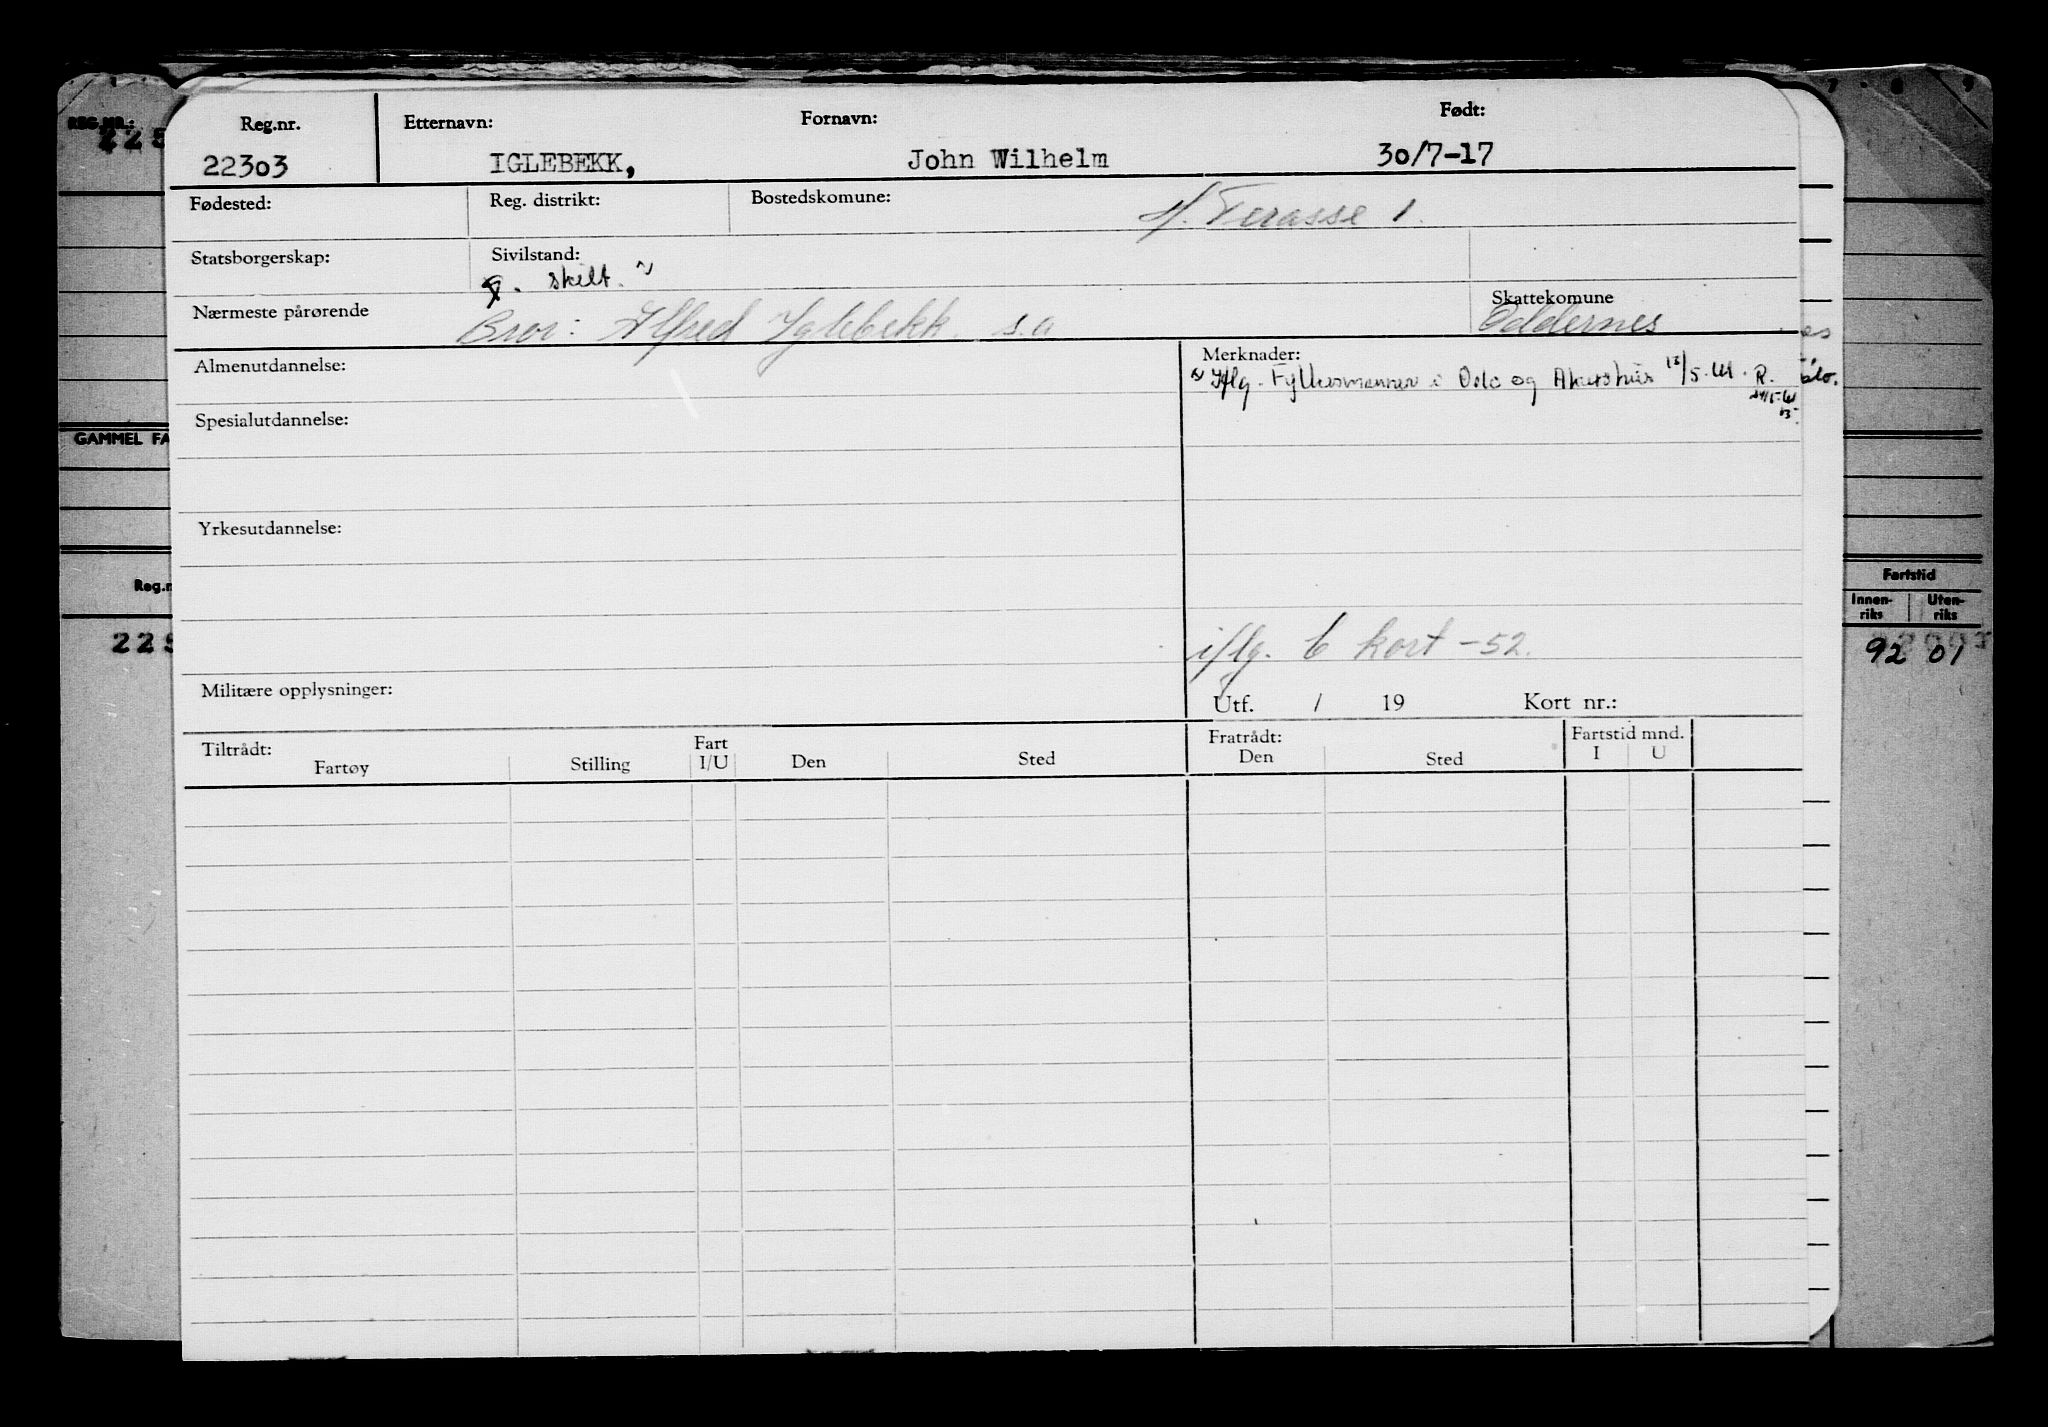 Reg.nr. Etternavn: Fornavn: Født:
22303 IGLEBEKK, John Wilhelm 30/7-17
Fødested: Reg. distrikt: Bostedskomune: H. Terasse 1.
Statsborgerskap: Sivilstand:
g. skilt.
Nærmeste pårørende Skattekomune
Bror: Alfred Iglebekk s.a Oddernes
Almenutdannelse: Merknader:
Iflg. Fylkesmannen i Oslo og Akershus R.
Spesialutdannelse:
Yrkesutdannelse:
iflg. 6 kort -52.
Militære opplysninger: Utf. / 19 Kort nr.:
Tiltrådt: Fratrådt: Fartstid mnd.
Fartøy Stilling Fart I/U Den Sted Den Sted I U
REG.NR.:
GAMMEL FA
Reg.n
Fartstid
Innen-riks Uten-riks
92 01